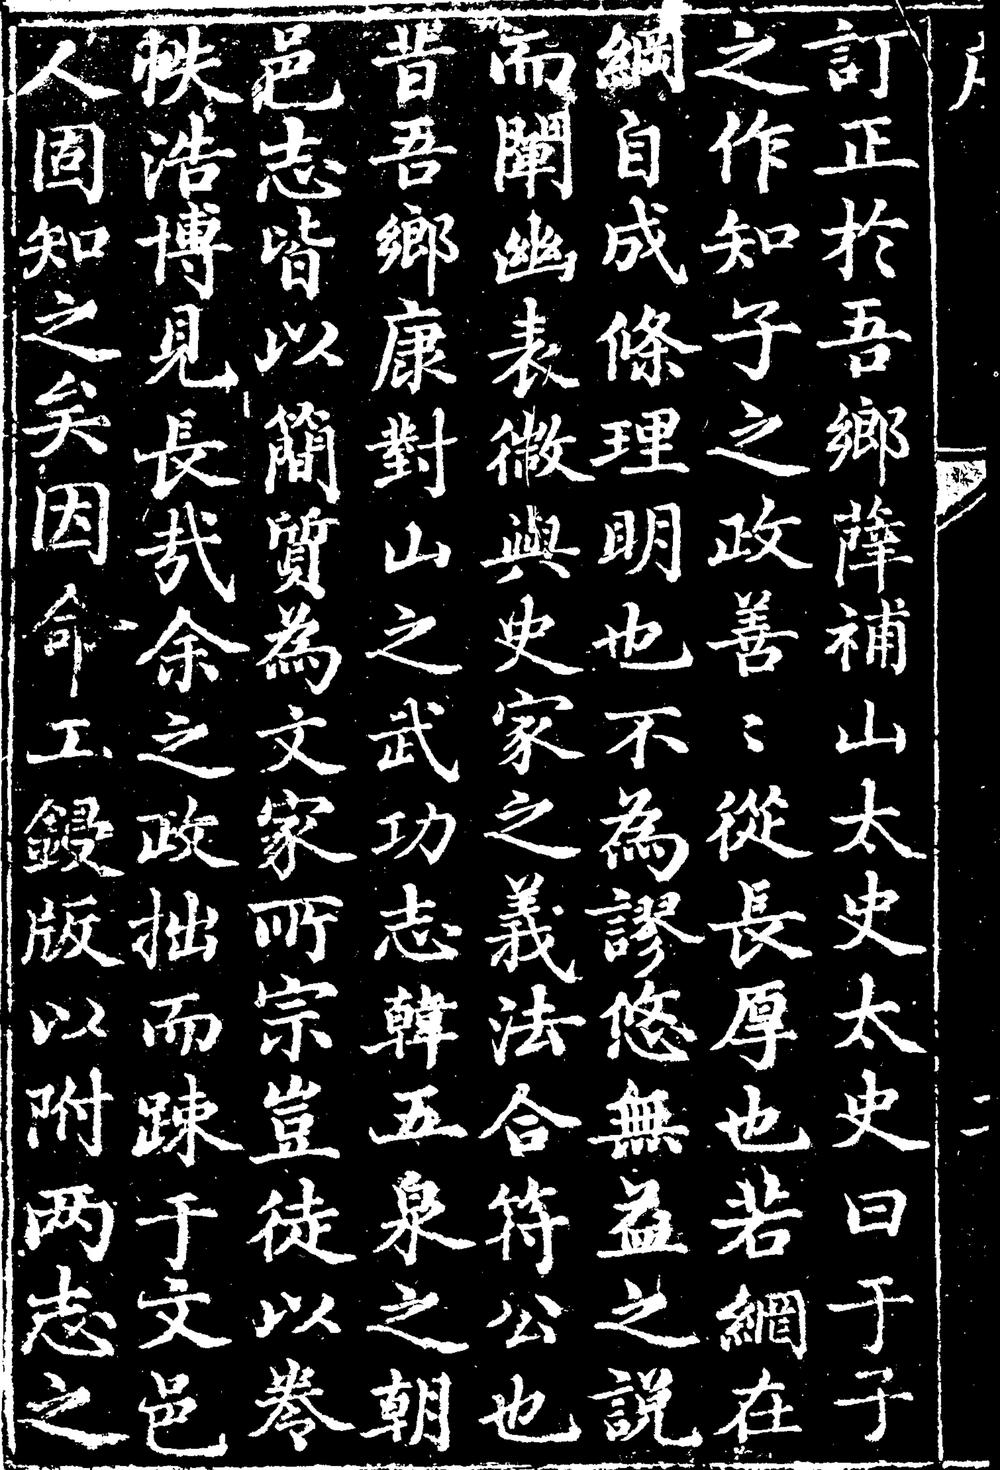 訂正於吾鄉薛補山太史太史曰于子
之作知子之政善〻從長厚也若網在
綱自成條理明也不為謬悠無益之說
而闡幽表微與史家之義法合符公也
昔吾鄉康對山之武功志韓五泉之朝
邑志皆以簡質為文家所宗豈徒以卷
帙浩博見長哉余之政拙而踈于文邑
人固知之矣因命工鋟版以附两志之
二